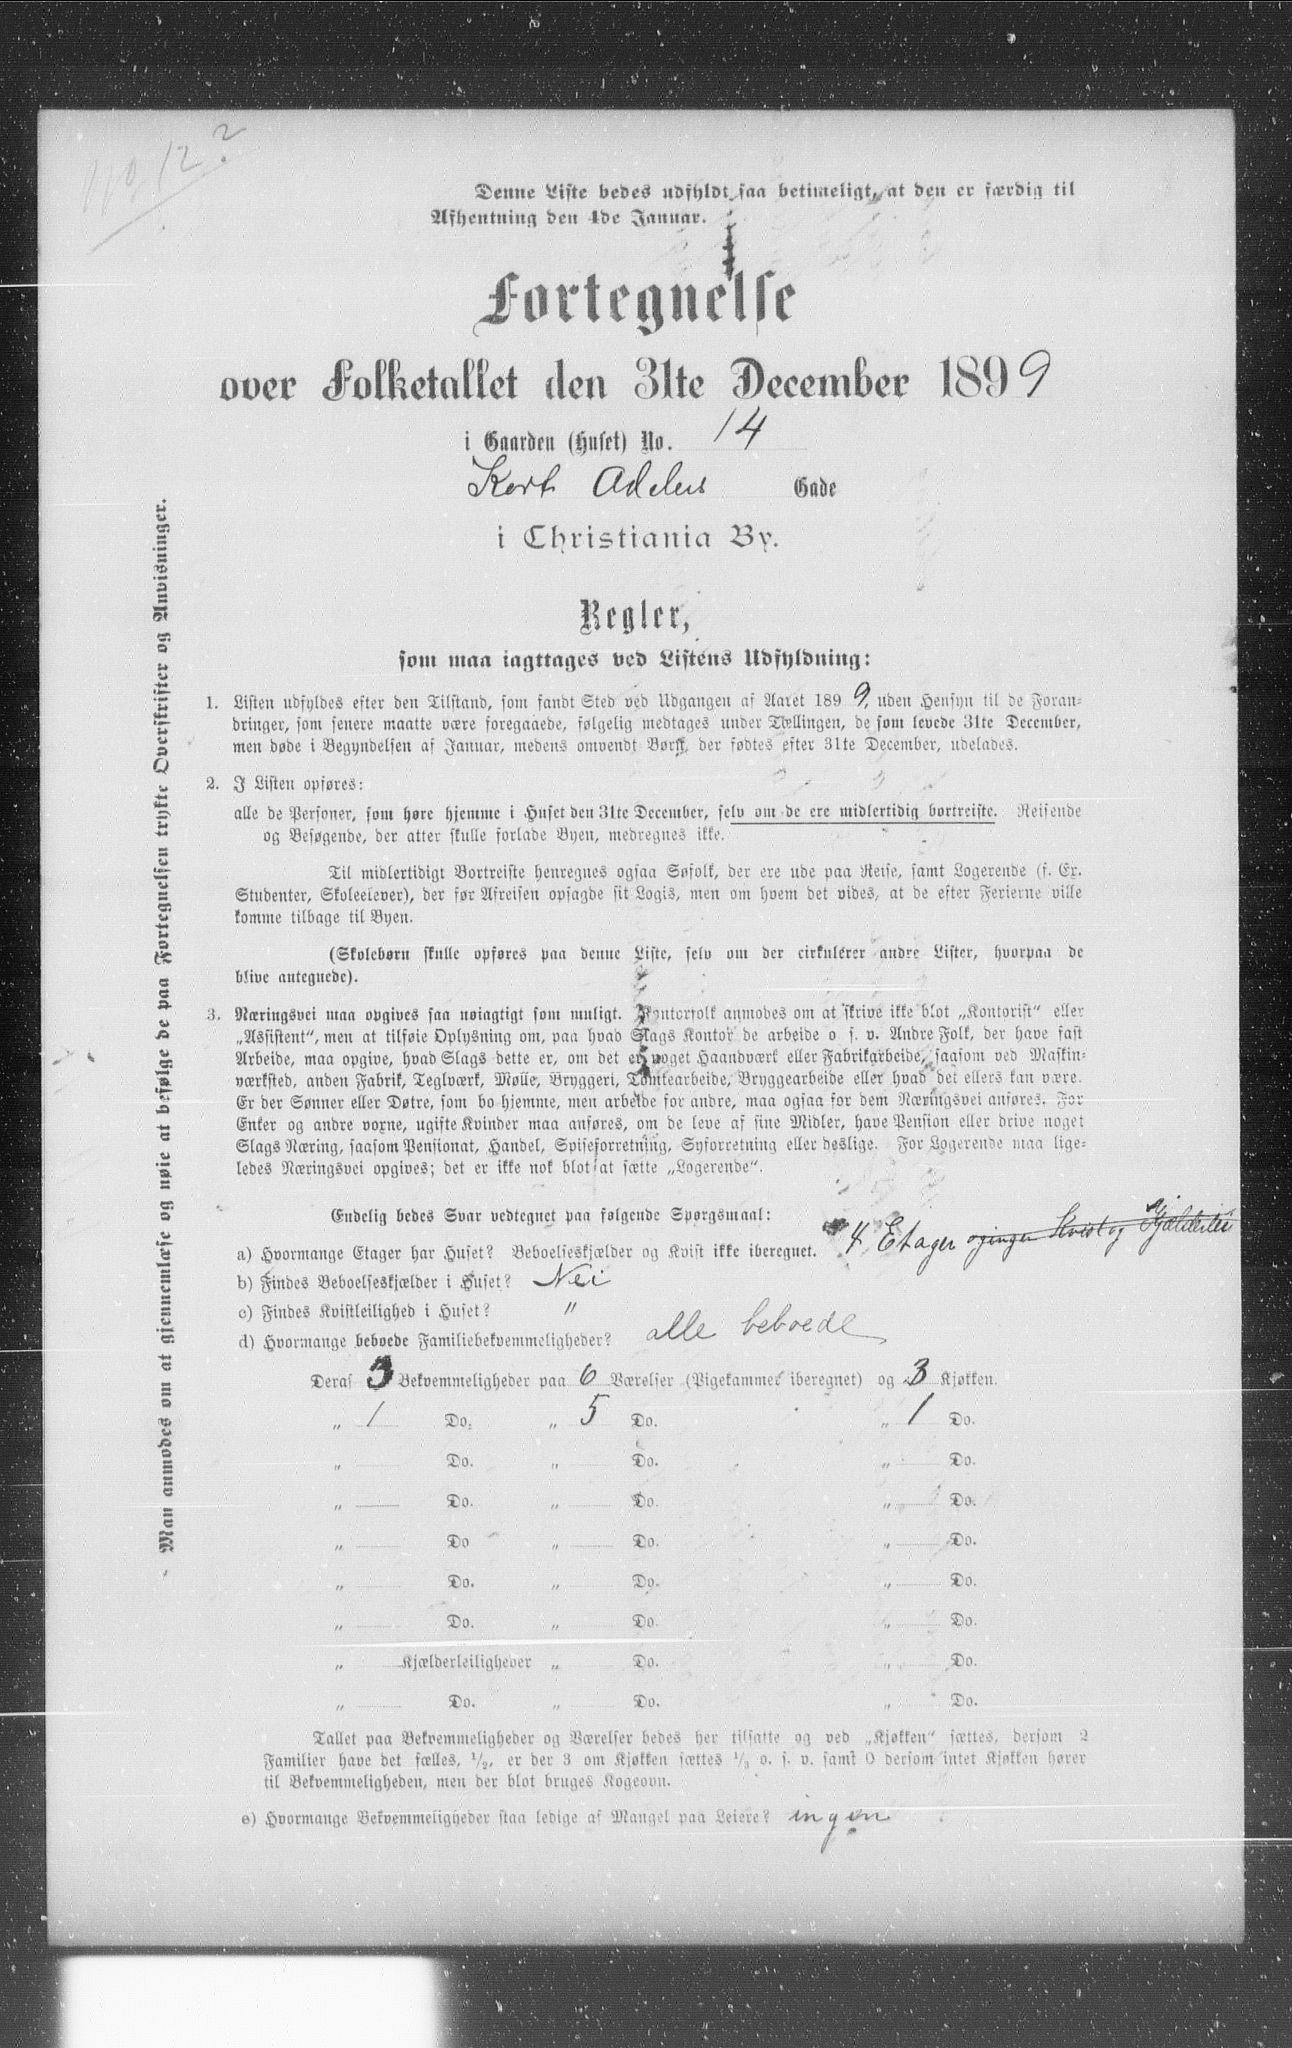 12 2
Denne Liste bedes udfyldt saa betimeligt, at den er færdig til
Afhentning den 4de Januar.
Fortegnelse
over Folketallet den 31te December 1899
i Gaarden (Huset) No. 14
Kort Adelers Gade
i Christiania By.
Regler,
som maa iagttages ved Listens Udfyldning:
1. Listen udfyldes efter den Tilstand, som fandt Sted ved Udgangen af Aaret 1899, uden Hensyn til de Foran-
dringer, som senere maatte være foregaaede, følgelig medtages under Tællingen, de som levede 31te December,
men døde i Begyndelsen af Januar, medens omvendt Børn, der fødtes efter 31te December, udelades.
2. I Listen opføres:
alle de Personer, som høre hjemme i Huset den 31te December, selv om de ere midlertidig bortreiste. Reisende
og Besøgende, der atter skulle forlade Byen, medregnes ikke.
Til midlertidigt Bortreiste henregnes ogsaa Søfolk, der ere ude paa Reise, samt Logerende (f. Ex.
Studenter, Skoleelever), der før Afreisen opsagde sit Logis, men om hvem det vides, at de efter Ferierne ville
komme tilbage til Byen.
(Skolebørn skulle opføres paa denne Liste, selv om der cirkulerer andre Lister, hvorpaa de
blive antegnede).
3. Næringsvei maa opgives saa nøiagtigt som muligt. Kontorfolk anmodes om at skrive ikke blot „Kontorist“ eller
„Assistent“, men at tilføie Oplysning om, paa hvad Slags Kontor de arbeide o. s. v. Andre Folk, der have fast
Arbeide, maa opgive, hvad Slags dette er, om det er noget Haandværk eller Fabrikarbeide, saasom ved Maskin-
værksted, anden Fabrik, Teglværk, Mølle, Bryggeri, Tomtearbeide, Bryggearbeide eller hvad det ellers kan være.
Er der Sønner eller Døtre, som bo hjemme, men arbeide for andre, maa ogsaa for dem Næringsvei anføres. For
Enker og andre voxne, ugifte Kvinder maa anføres, om de leve af sine Midler, have Pension eller drive noget
Slags Næring, saasom Pensionat, Handel, Spiseforretning, Syforretning eller deslige. For Logerende maa lige-
ledes Næringsvei opgives; det er ikke nok blot at sætte „Logerende“.
Endelig bedes Svar vedtegnet paa følgende Spørgsmaal:
a) Hvormange Etager har Huset? Beboelseskjælder og Kvist ikke iberegnet. 4 Etager og ingen Kvist og
b) Findes Beboelseskjælder i Huset? Nei
c) Findes Kvistleilighed i Huset? "
d) Hvormange beboede Familiebekvemmeligheder? alle beboede
Deraf 3 Bekvemmeligheder paa 6 Værelser (Pigekammer iberegnet) og 3 Kjøkken.
„ 1 Do. „ 5 Do. „ 1 Do.
„ Do. „ Do. „ Do.
„ Do. „ Do. „ Do.
„ Do „ Do. „ Do.
„ Do. „ Do. „ Do.
„ Do. „ Do. „ Do.
„ Kjælderleiligheder „ Do. „ Do.
„ Do. „ Do. „ Do.
Tallet paa Bekvemmeligheder og Værelser bedes her tilsatte og ved „Kjøkken“ sættes, dersom 2
Familier have det fælles, 1/2, er der 3 om Kjøkken sættes 1/3 o. s. v. samt 0 dersom intet Kjøkken hører
til Bekvemmeligheden, men der blot bruges Kogeovn.
e) Hvormange Bekvemmeligheder staa ledige af Mangel paa Leiere? ingen
Man anmodes om at gjennemlæse og nøie at befølge de paa Fortegnelsen trykte Overskrifter og Anvisninger.